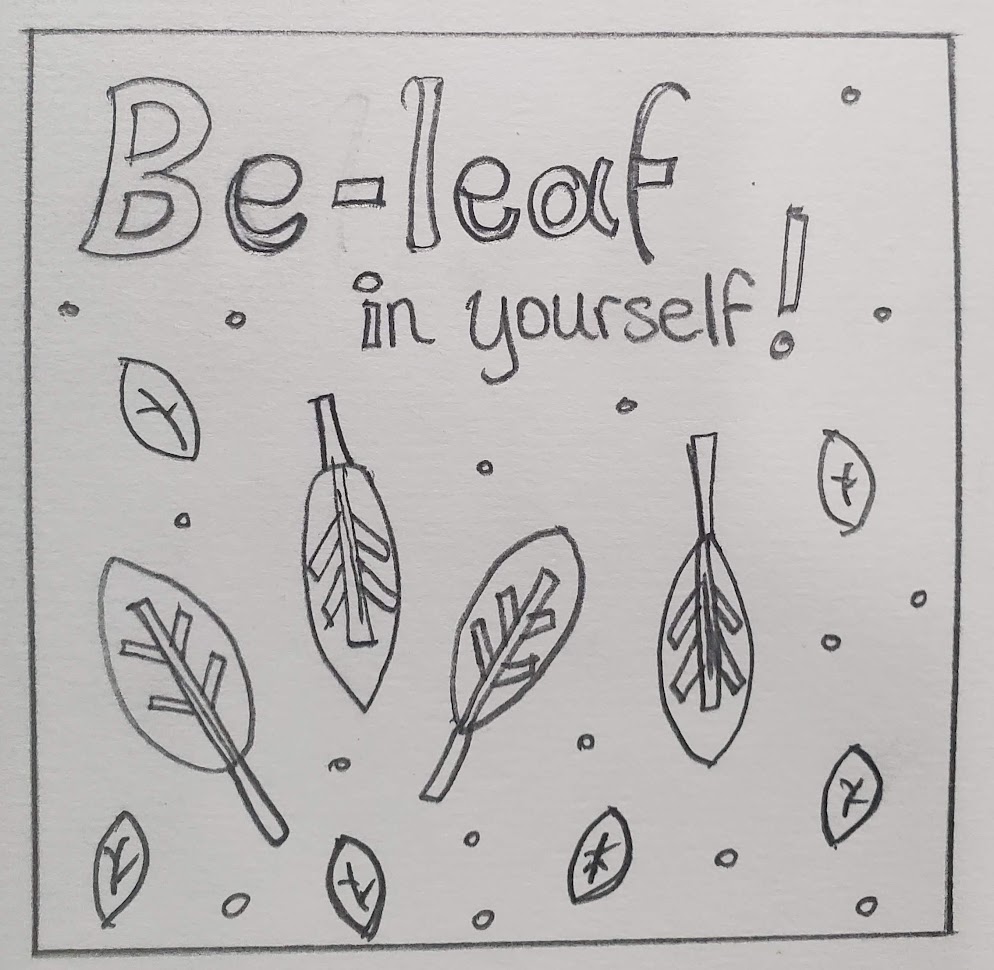 Be-leaf
in yourself!